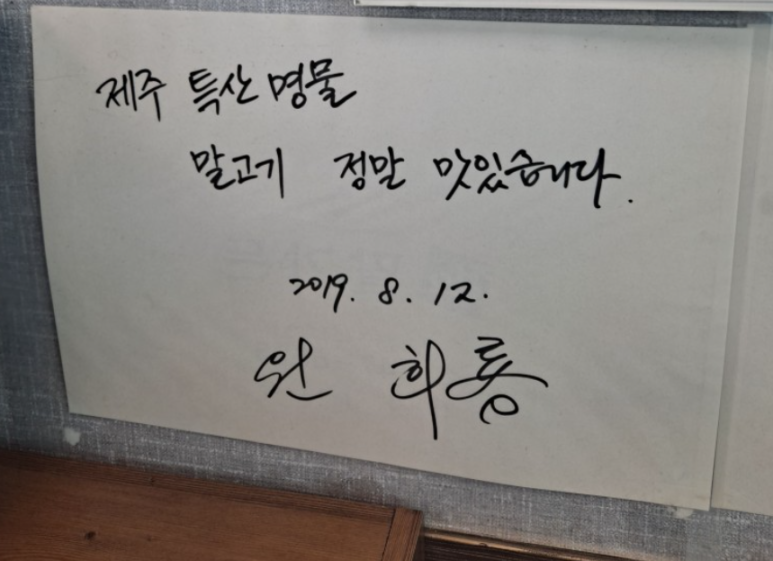 제주 특산 명물
말고기 정말 맛있습니다.
2019. 8. 12.
원 희룡